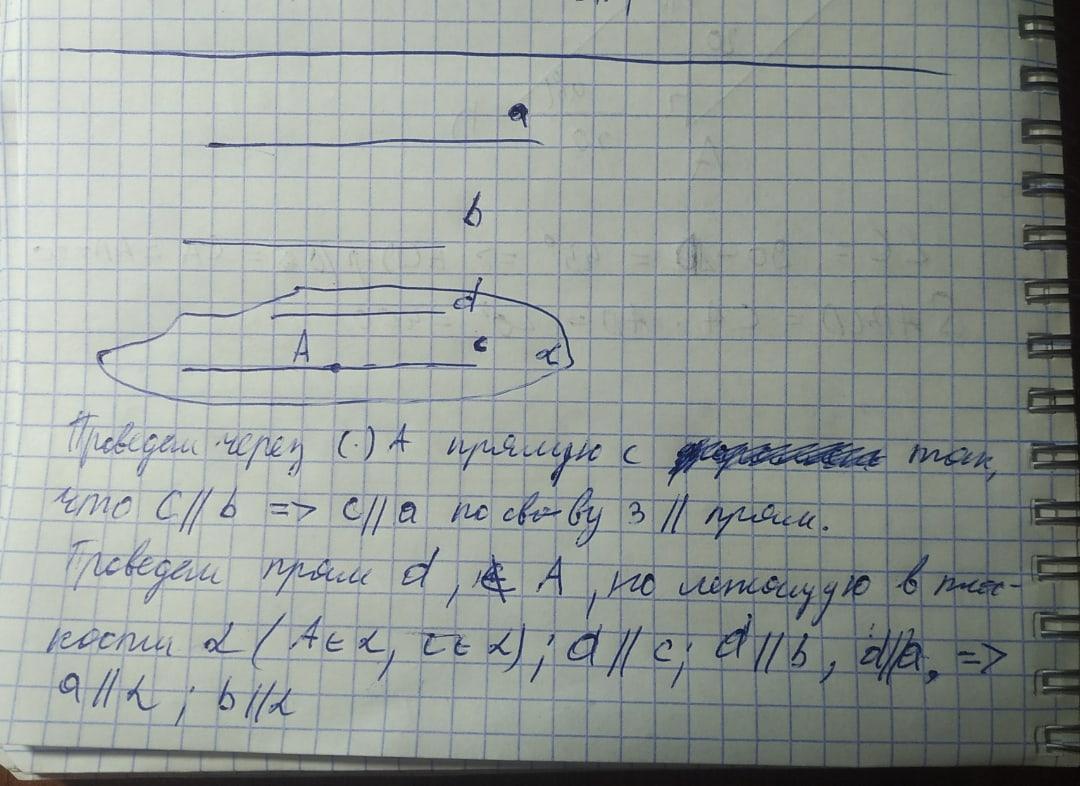 a
b
d
A c α
Проведем через (·) A прямую c так,
что c || b => c || a по св-ву 3 || прям.
Проведем прям d, ∉ A, но лежащую в плос-
кости α (A ∈ α, c ∈ α); d || c; d || b, d || a, =>
a || α; b || α